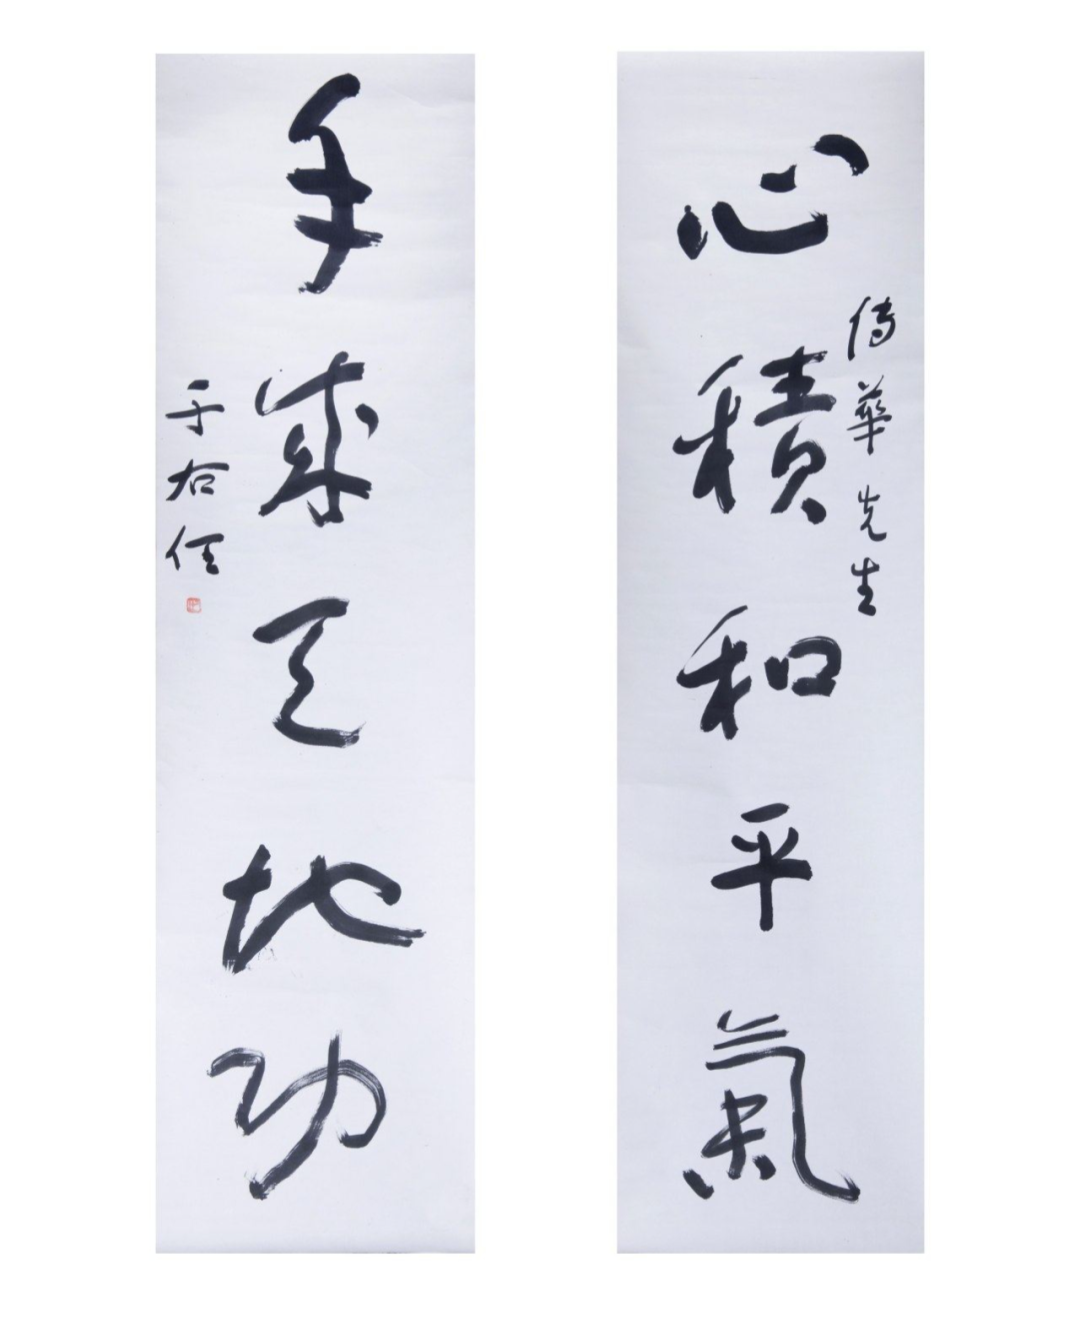 心積和平氣
傳華先生
手成天地功
于右任